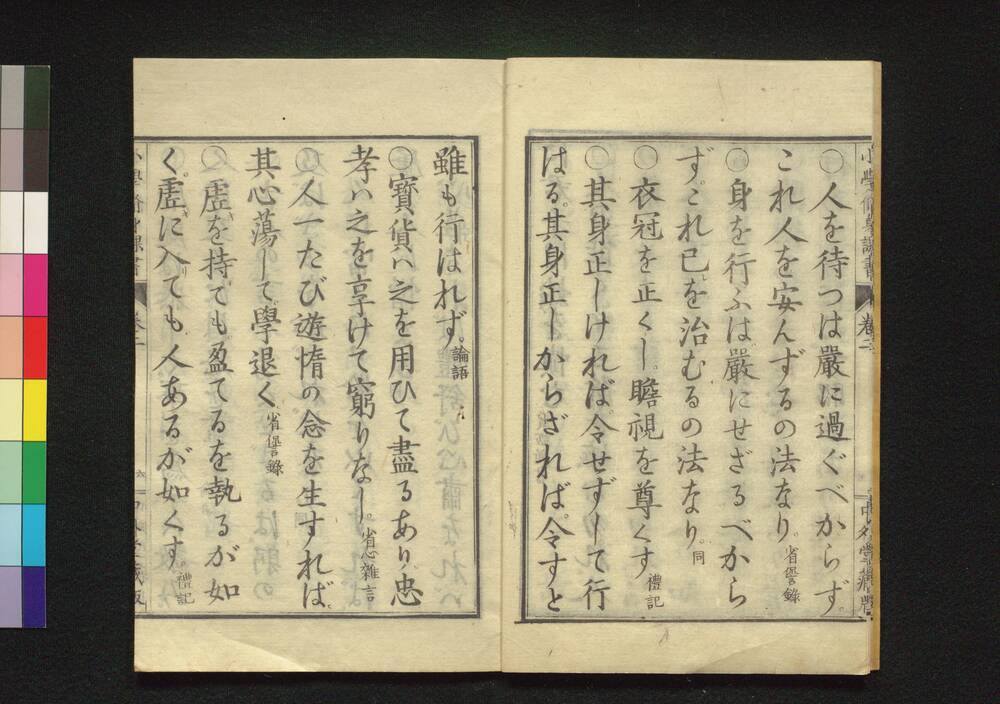 ○人を待つは嚴に過ぐべからず。
これ人を安んずるの法なり。省諐錄
○身を行ふは嚴にせざるべから
ず。これ己を治むるの法なり。同
○衣冠を正くし。瞻視を尊くす 禮記
○其身正しければ令せずして行
はる。其身正しからざれば。令すと
雖も行はれず。論語
○寳貨ハ之を用ひて盡るあり。忠
孝ハ之を享けて窮りなし。省心雜言
○人一たび遊惰の念を生すれば。
其心蕩して學退く 省諐錄
○虛を持ても盈てるを執るが如
く。虛に入ても人あるが如くす。禮記
小學脩身課書 卷二
卷二 六